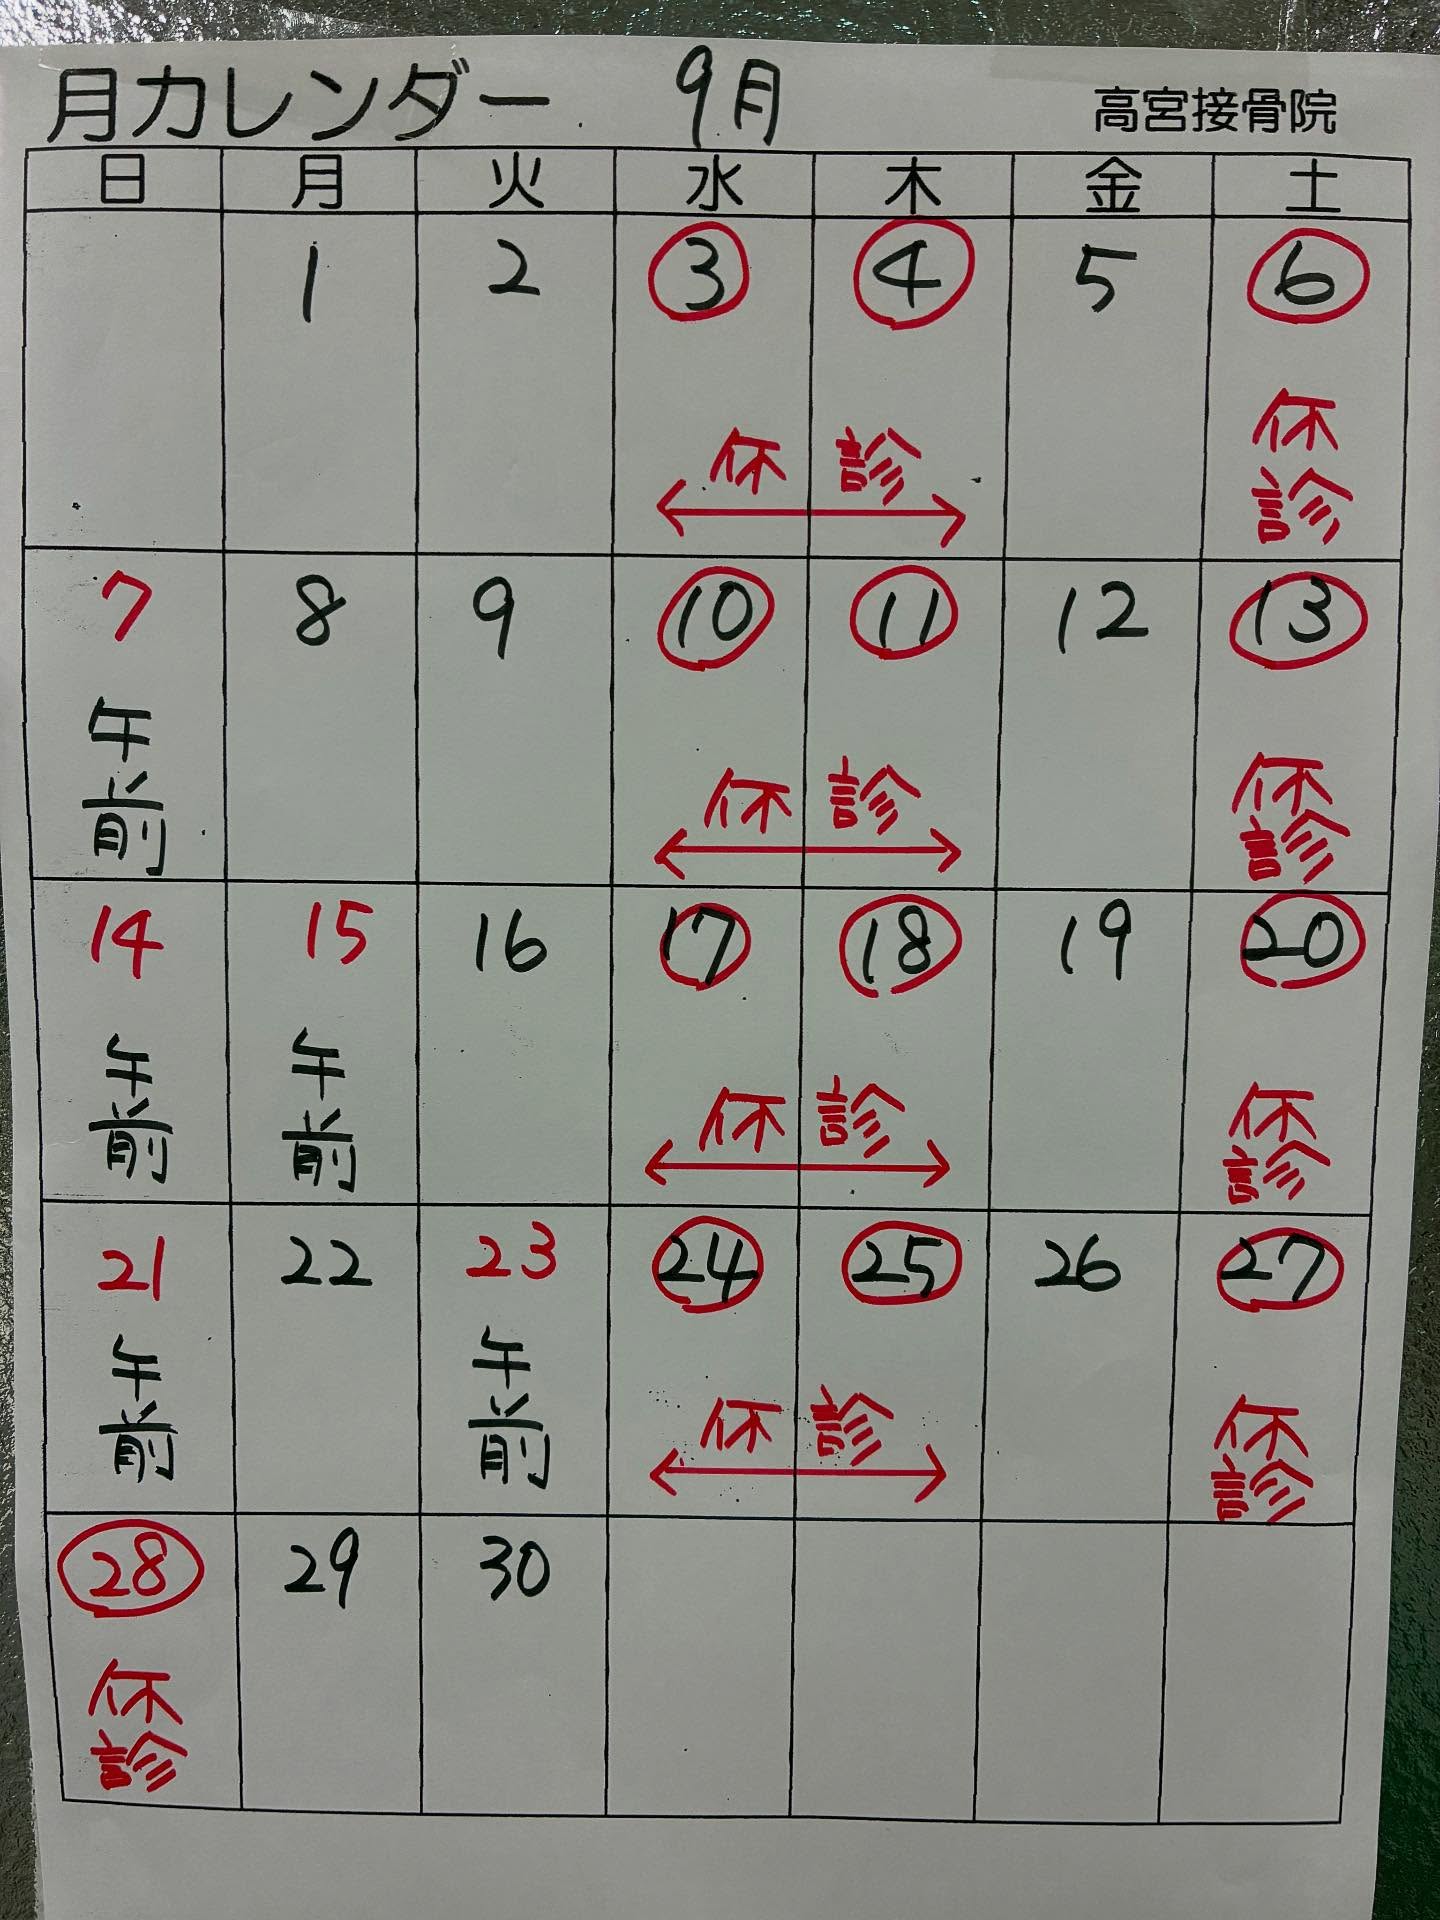 月カレンダー 9月 高宮接骨院
日 月 火 水 木 金 土
1 2 3 4 5 6
休診 休診
7 8 9 10 11 12 13
午前 休診 休診
14 15 16 17 18 19 20
午前 午前 休診 休診
21 22 23 24 25 26 27
午前 午前 休診 休診
28 29 30
休診